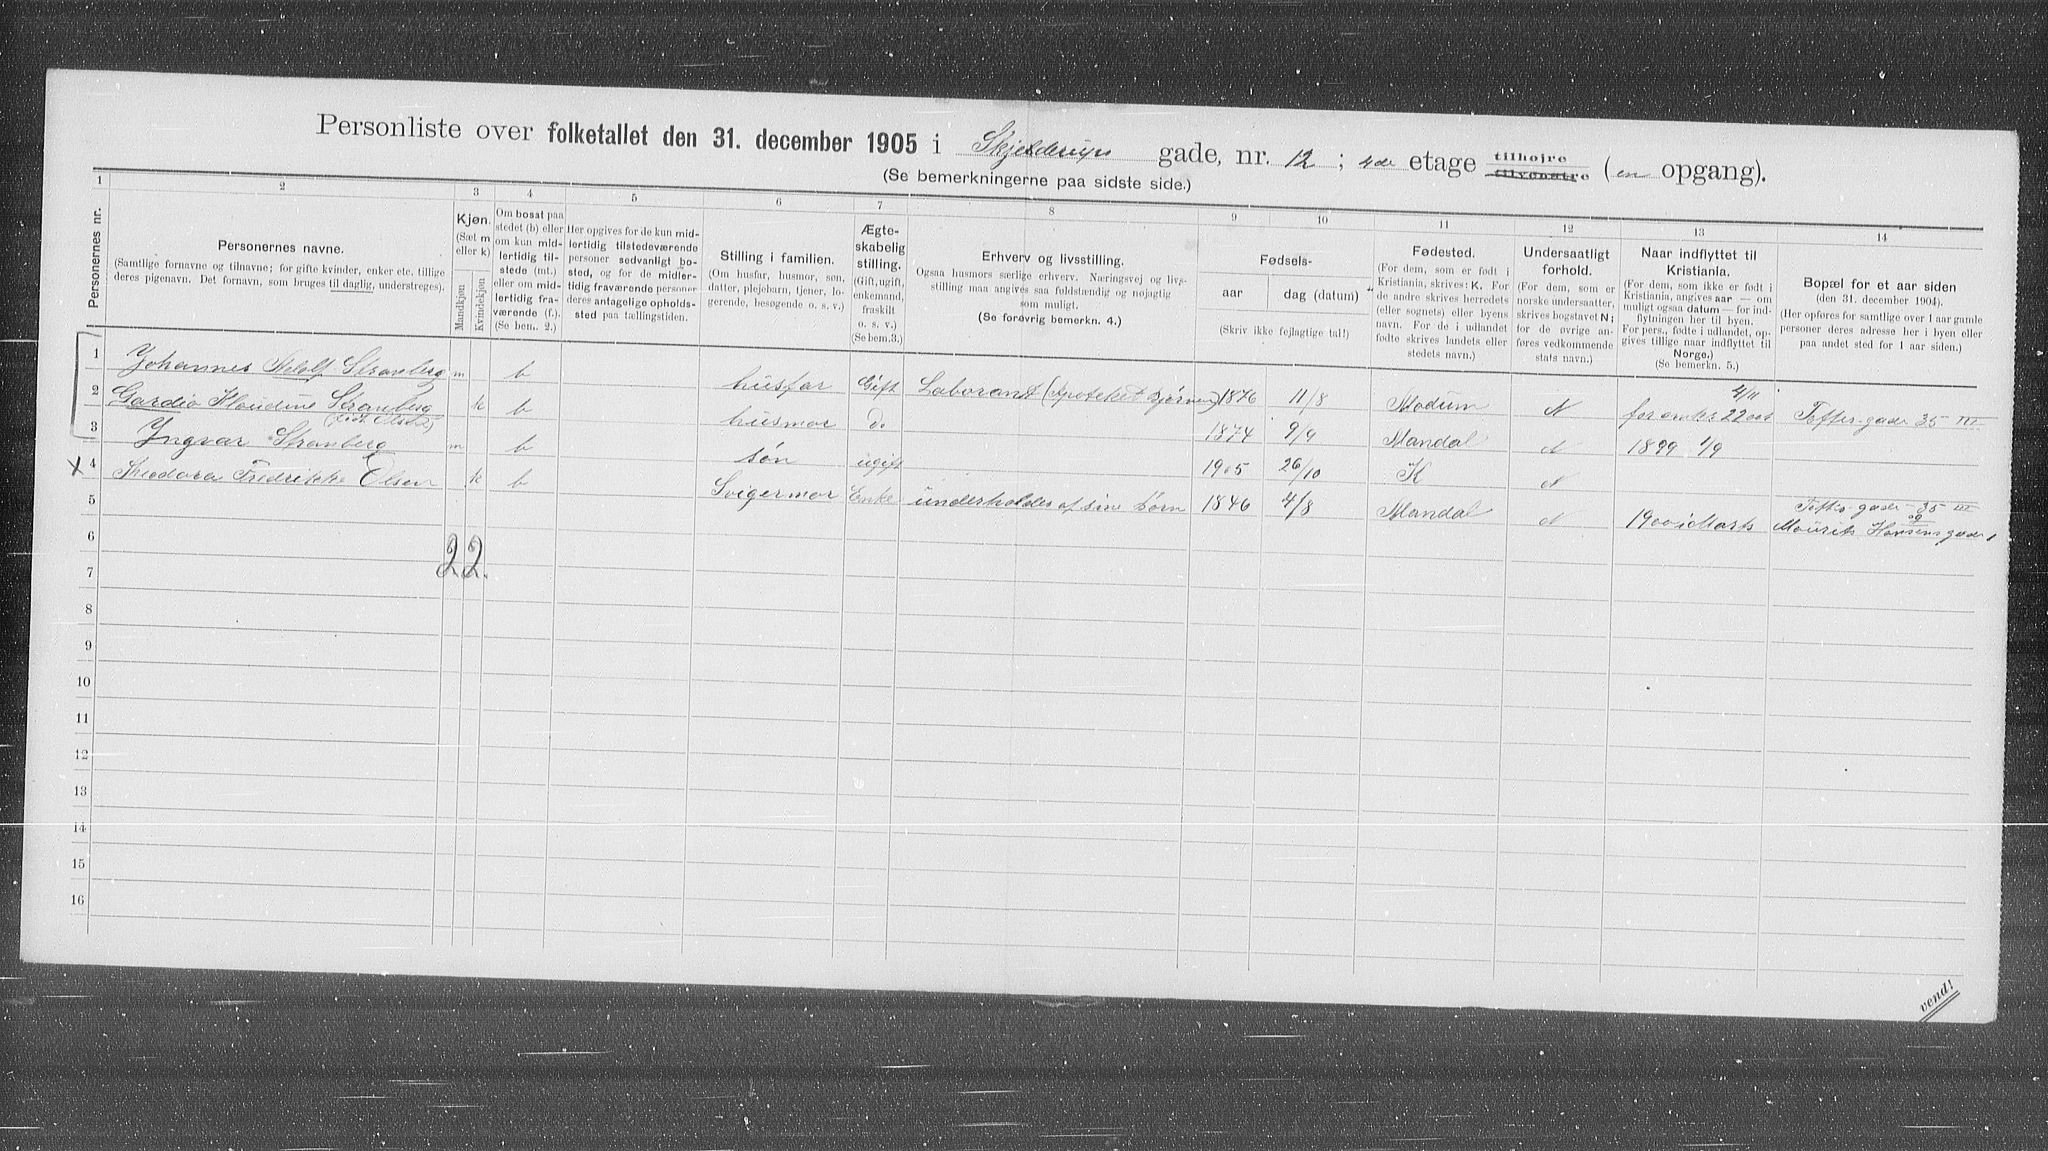 Personliste over folketallet den 31. december 1905 i Skjelderups gade, nr. 12 ; 4de etage tilhøjre tilvenstre (en opgang).
(Se bemerkningerne paa sidste side.)
1 2 3 4 5 6 7 8 9 10 11 12 13 14
Personernes nr.
Personernes navne.
(Samtlige fornavne og tilnavne; for gifte kvinder, enker etc. tillige
deres pigenavn. Det fornavn, som bruges til daglig, understreges).
Kjøn.
(Sæt m
eller k)
Mandkjøn
Kvindekjøn
Om bosat paa
stedet (b) eller
om kun mid-
lertidig til-
stede (mt.)
eller om mid-
lertidig fra-
værende (f.).
(Se bem. 2.)
Her opgives for de kun mid-
lertidig tilstedeværende
personer sedvanligt bo-
sted, og for de midler-
tidig fraværende personer
deres antagelige opholds-
sted paa tællingstiden.
Stilling i familien.
(Om husfar, husmor, søn,
datter, plejebarn, tjener, lo-
gerende, besøgende o. s. v.)
Ægte-
skabelig
stilling.
(Gift, ugift,
enkemand,
fraskilt
o. s. v.)
(Se bem.3.)
Erhverv og livsstilling.
Ogsaa husmors særlige erhverv. Næringsvej og livs-
stilling maa angives saa fuldstændig og nøjagtig
som muligt.
(Se forøvrig bemerkn. 4.)
Fødsels-
aar
dag (datum)
(Skriv ikke fejlagtige tal!)
Fødested.
(For dem, som er født i
Kristiania, skrives: K. For
de andre skrives herredets
(eller sognets) eller byens
navn. For de i udlandet
fødte skrives landets eller
stedets navn.)
Undersaatligt
forhold.
(For dem, som er
norske undersaatter,
skrives bogstavet N;
for de øvrige an-
føres vedkommende
stats navn.)
Naar indflyttet til
Kristiania.
(For dem, som ikke er født i
Kristiania, angives aar — om
muligt ogsaa datum — for ind-
flytningen her til byen.
For pers., fødte i udlandet, op-
gives tillige naar indflyttet til
Norge.)
(Se bemerkn. 5.)
Bopæl for et aar siden
(den 31. december 1904).
(Her opføres for samtlige over 1 aar gamle
personer deres adresse her i byen eller
paa andet sted for 1 aar siden.)
1 Johannes Adolf Stranberg m b husfar Gift Laborant (Apoteket Bjørnen) 1876 11/8 Modum N for omtr. 22 4/11 Toftes-gade 35 III
2 Klaudine Stranberg k b husmor do 1874 9/9 Mandal N 1899 1/9
(født Olsen)
3 Yngvar Stranberg m b søn ugift 1905 26/10 K N
X 4 Theodora Fredrikke Olsen k b Svigermor Enke underholdes af sine børn 1846 4/8 Mandal N 1900 i Marts Toftes-gade 35 III
og
Maurits Hansens gade 1
5
6
22.
7
8
9
10
11
12
13
14
15
16
vend!